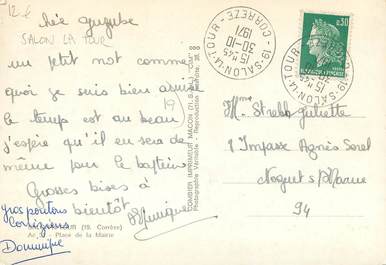 12 €
SALON LA TOUR
un petit mot comme
quoi je suis bien
(19)
le temps est au beau
j'espère qu'il en sera de
même pour le
Grosses bises à
bientôt
gros poutous
Corréziens
Dominique
(19. Corrèze)
Place de la Mairie
COMBIER IMPRIMEUR MACON (71.S.-L.) "CIM"
Photographie Véritable - Reproduction Interdite.
19-SALON-LA-TOUR
CORREZE
15H45
30-10
1971
19-SALON-LA-TOUR
15H45
0,30
Mme Strebb Juliette
1 Impasse Agnès Sorel
Nogent s/Marne
94